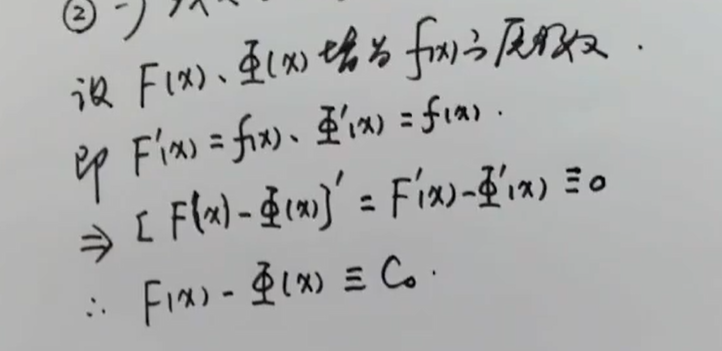 ②
设 F(x)、Φ(x) 皆为 f(x) 之原函数.
即 F'(x) = f(x)、Φ'(x) = f(x).
⇒ [F(x) - Φ(x)]' = F'(x) - Φ'(x) ≡ 0
∴ F(x) - Φ(x) ≡ C₀.